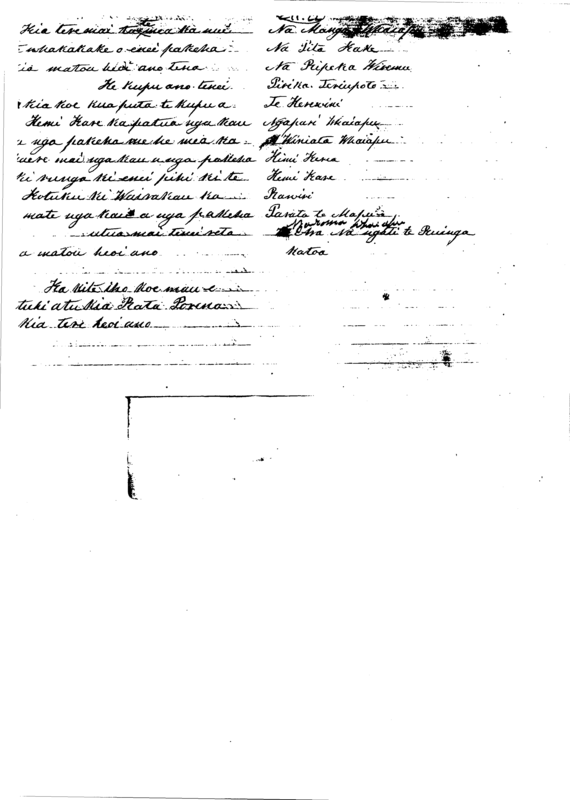 Kia tere mai te ka nui
whakakake o enei pakeha
matou heoi ano tena
He kupu ano tenei
kia koe kua puta te kupu a
Hemi Kare ka patua nga kau
a nga pakeha me he mea ka
mai nga kau a nga pakeha
ki runga ki enei piki ki te
Kotuku ki Wairakau ka
mate nga kau a nga pakeha
utua mai tenei reta
a matou heoi ano
Ka kite iho koe mau e
tuki atu kia Rata Porena
kia tere heoi ano
Na Manga Whaiapu
Na Pita Kake
Na Ripeka Wiremu
Pirika Teriupoto
Te Herewini
Ngapari Whaiapu
Winiata Whaiapu
Himi Kena
Hemi Kare
Rawiri
Parata te Mapu
Na ngati te Ruinga
Katoa